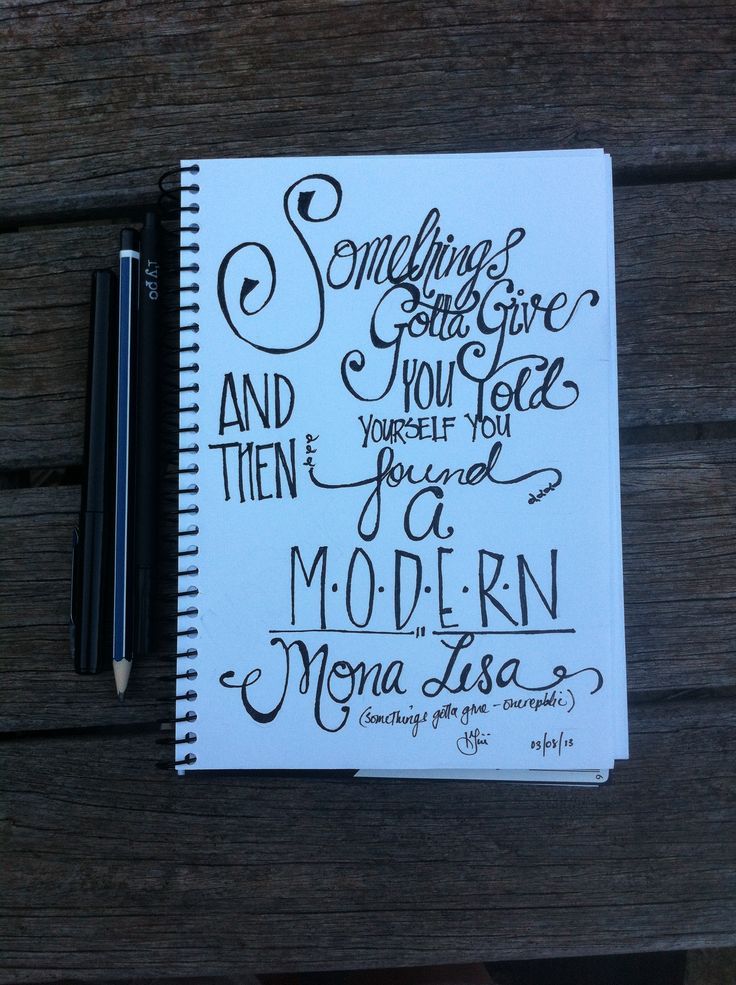 Somethings
Gotta Give
AND
THEN
YOU Told
YOURSELF YOU
found
a
M·O·D·E·R·N
Mona Lisa
(something's gotta give - onerepublic)
03/08/13
typo